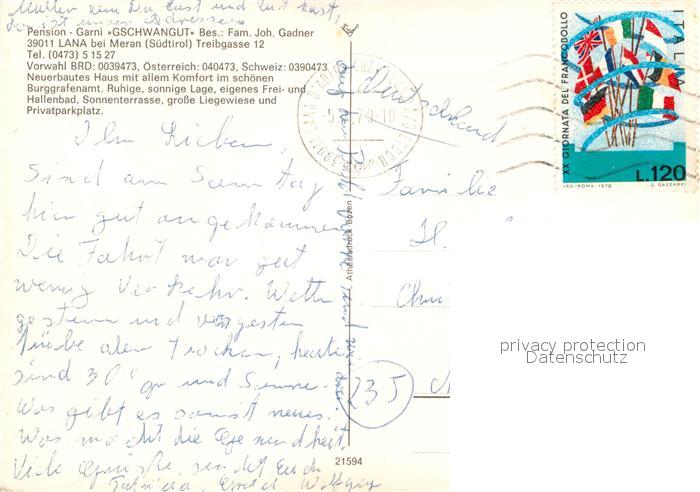 Mutter wenn Du Lust und Zeit hast,
Das ist unser Adressen
Pension - Garni »GSCHWANGUT« Bes.: Fam. Joh. Gadner
39011 LANA bei Meran (Südtirol) Treibgasse 12
Tel. (0473) 5 15 27
Vorwahl BRD: 0039473, Österreich: 040473, Schweiz: 0390473
Neuerbautes Haus mit allem Komfort im schönen
Burggrafenamt. Ruhige, sonnige Lage, eigenes Frei- und
Hallenbad, Sonnenterrasse, große Liegewiese und
Privatparkplatz.
Ihr Lieben,
Sind am Samstag
hier gut angekommen
Die Fahrt war gut
wenig Verkehr. Wetter
gestern und vorgestern
trübe aber trocken, heute
sind 30° gr und Sonne.
Was gibt es sonst neues?
Was macht die Gesundheit.
Viele Grüße, sendet Euch
Wolfgang
Deutschland
Familie
H.
235
Athesiadruck Bozen
21594
XX GIORNATA DEL FRANCOBOLLO
ITALIA
L.120
I.P.S.-ROMA-1978
G. GAZZARRI
privacy protection
Datenschutz